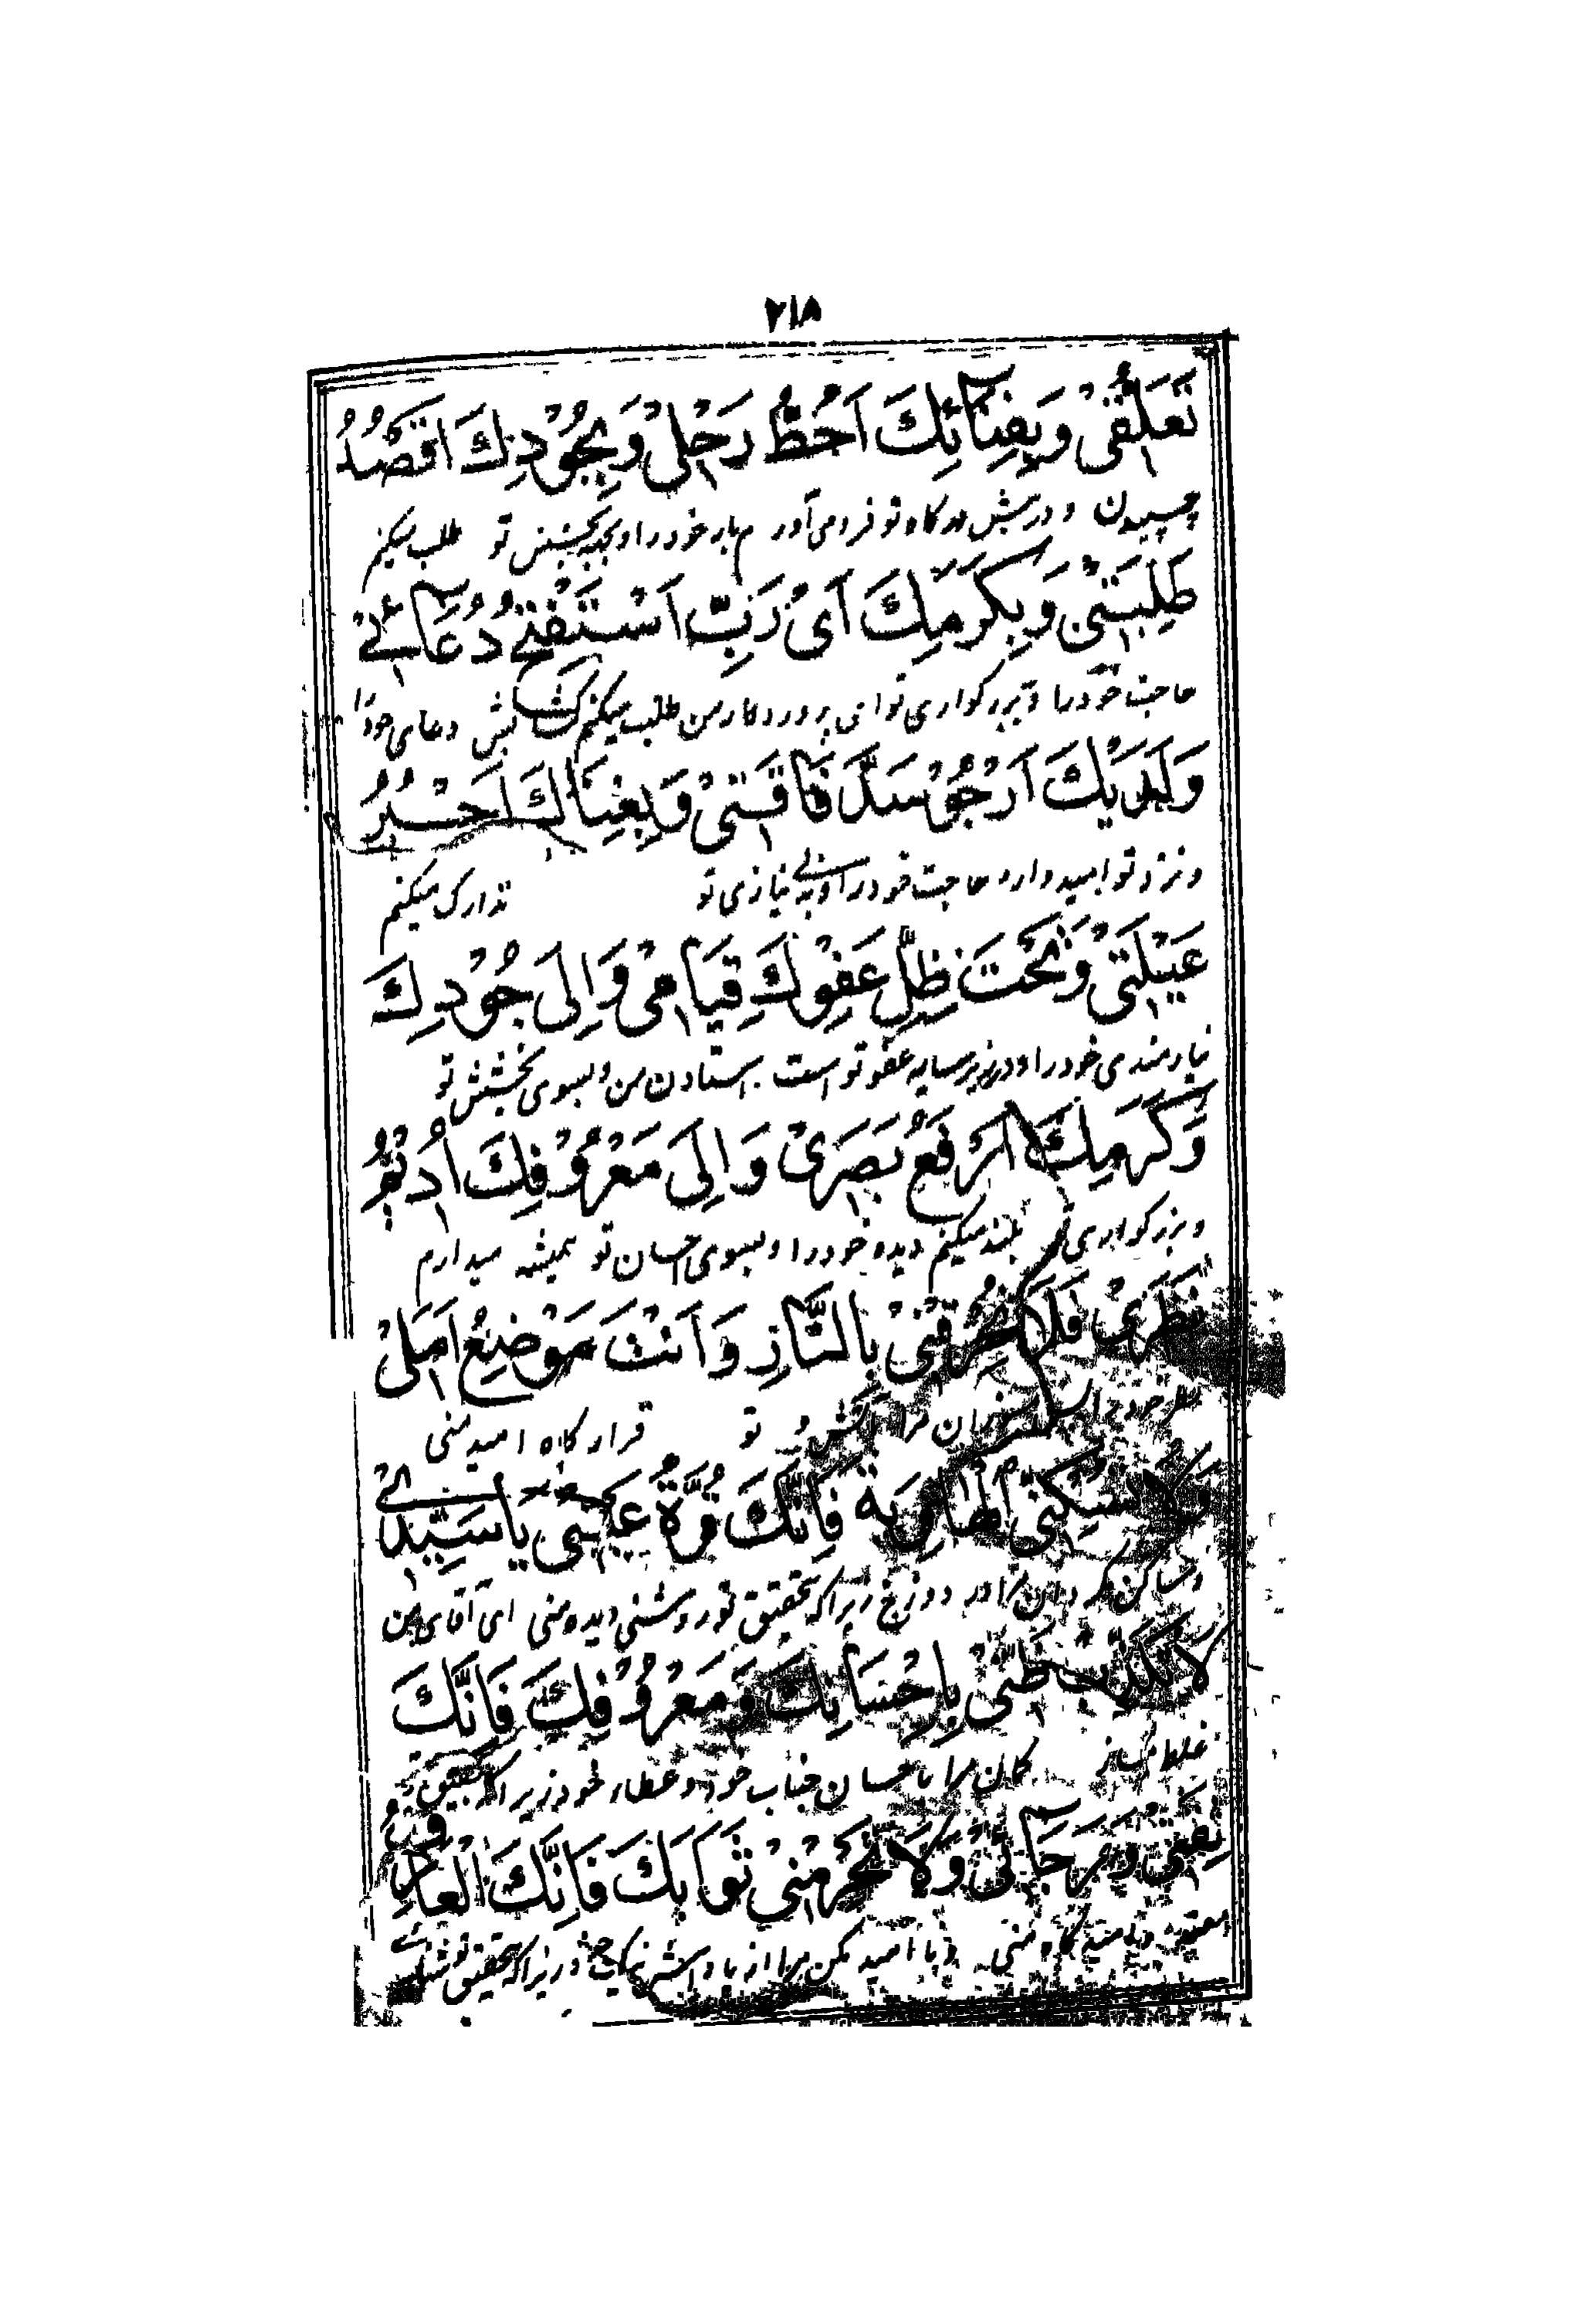 ۲۱۸
تَعَلُّقِىْ وَبِفِنَآئِكَ اَحُطُّ رَحْلِىْ وَبِجُوْدِكَ اَقْصُدُ
چسپیدن و درپیش درکاه تو فرومی آورم بار خود را و بجهة بخشش تو طلب میکنم
طَلِبَتِىْ وَبِكَرَمِكَ اَىْ رَبِّ اَسْتَفْتِحُ دُعَآئِىْ
حاجت خود را و ببزرکواری تو ای پروردکار من طلب میکنم کشایش دعای خود را
وَلَدَيْكَ اَرْجُوْ سَدَّ فَاقَتِىْ وَبِغِنَاكَ اَجْبُرُ
ونزد تو امیدوارم حاجت خود را و به بی نیازی تو تدارک میکنم
عَيْلَتِىْ وَتَحْتَ ظِلِّ عَفْوِكَ قِيَامِىْ وَاِلٰى جُوْدِكَ
نیازمندی خود را و در زیر سایه عفو تو است ایستادن من و بسوی بخشش تو
وَكَرَمِكَ اَرْفَعُ بَصَرِىْ وَاِلٰى مَعْرُوْفِكَ اُدِيْمُ
وبزرکواری تو بلند میکنم دیده خود را و بسوی احسان تو همیشه میدارم
نَظَرِىْ فَلَا تُحْرِقْنِىْ بِالنَّارِ وَاَنْتَ مَوْضِعُ اَمَلِىْ
مرا تو قرار کاه امید منی
وَلَا تُسْكِنِّىْ الْهَاوِيَةَ فَاِنَّكَ قُرَّةُ عَيْنِىْ يَا سَيِّدِىْ
در دوزخ زیراکه بتحقیق تو روشنی دیده منی ای آقای من
لَا تُكَذِّبْ ظَنِّىْ بِاِحْسَانِكَ وَمَعْرُوْفِكَ فَاِنَّكَ
غلط مساز کمان مرا باحسان جناب خود و عطاء خود زیراکه بتحقیق تو
ثِقَتِىْ وَرَجَآئِىْ وَلَا تَحْرِمْنِىْ ثَوَابَكَ فَاِنَّكَ الْعَارِفُ
منی ونا امید مکن مرا از زیراکه بتحقیق تو